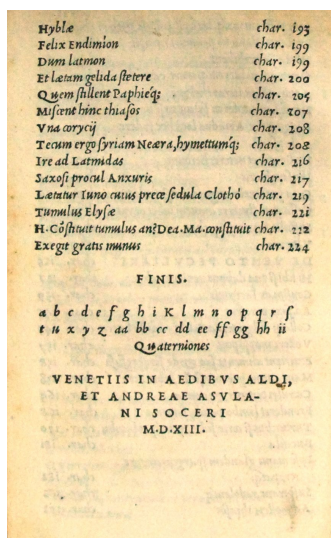 Hyblæ char. 193
Felix Endimion char. 199
Dum latmon char. 199
Et lætam gelida ſtetere char. 200
Quem ſtillent Paphieq; char. 205
Miſcent hinc thiaſos char. 207
Vna corycij char. 208
Tecum ergo ſyriam Neæra, hymettumq́; char. 208
Ire ad Latmidas char. 216
Saxoſi procul Anxuris char. 217
Lætatur Iuno cuius prece ſedula Clothó char. 219
Tumulus Elyſæ char. 221
H. Cōſtituit tumulus an? Dea. Ma. conſtituit char. 222
Exegit gratis munus char. 224
FINIS.
a b c d e f g h i K l m n o p q r ſ
t u x y z aa bb cc dd ee ff gg hh ii
Quaterniones
VENETIIS IN AEDIBVS ALDI,
ET ANDREAE ASVLA-
NI SOCERI
M.D.XIII.